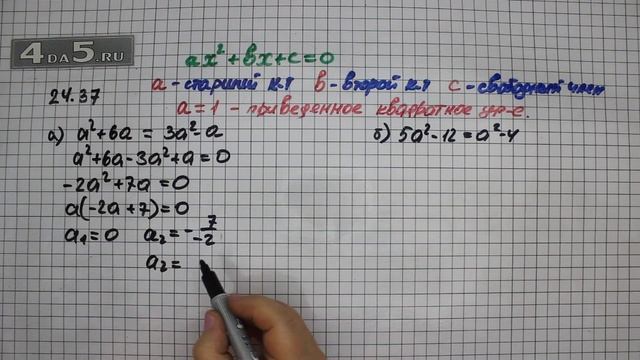 4DA5.RU
ax² + bx + c = 0
a - старший к.т b - второй к.т c - свободный член
a = 1 - приведенное квадратное ур-е.
24.37
а) a² + 6a = 3a² - a
a² + 6a - 3a² + a = 0
-2a² + 7a = 0
a(-2a + 7) = 0
a₁ = 0 a₂ = - 7/-2
a₂ =
б) 5a² - 12 = a² - 4